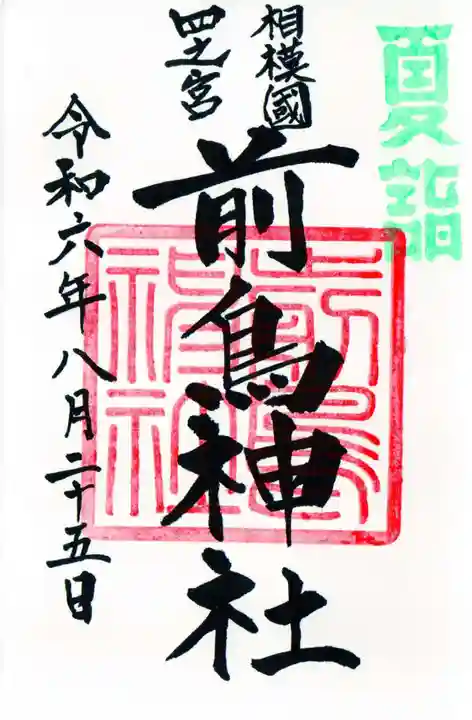 夏詣
相模國
四之宮
前鳥神社
令和六年八月二十五日
前鳥神社